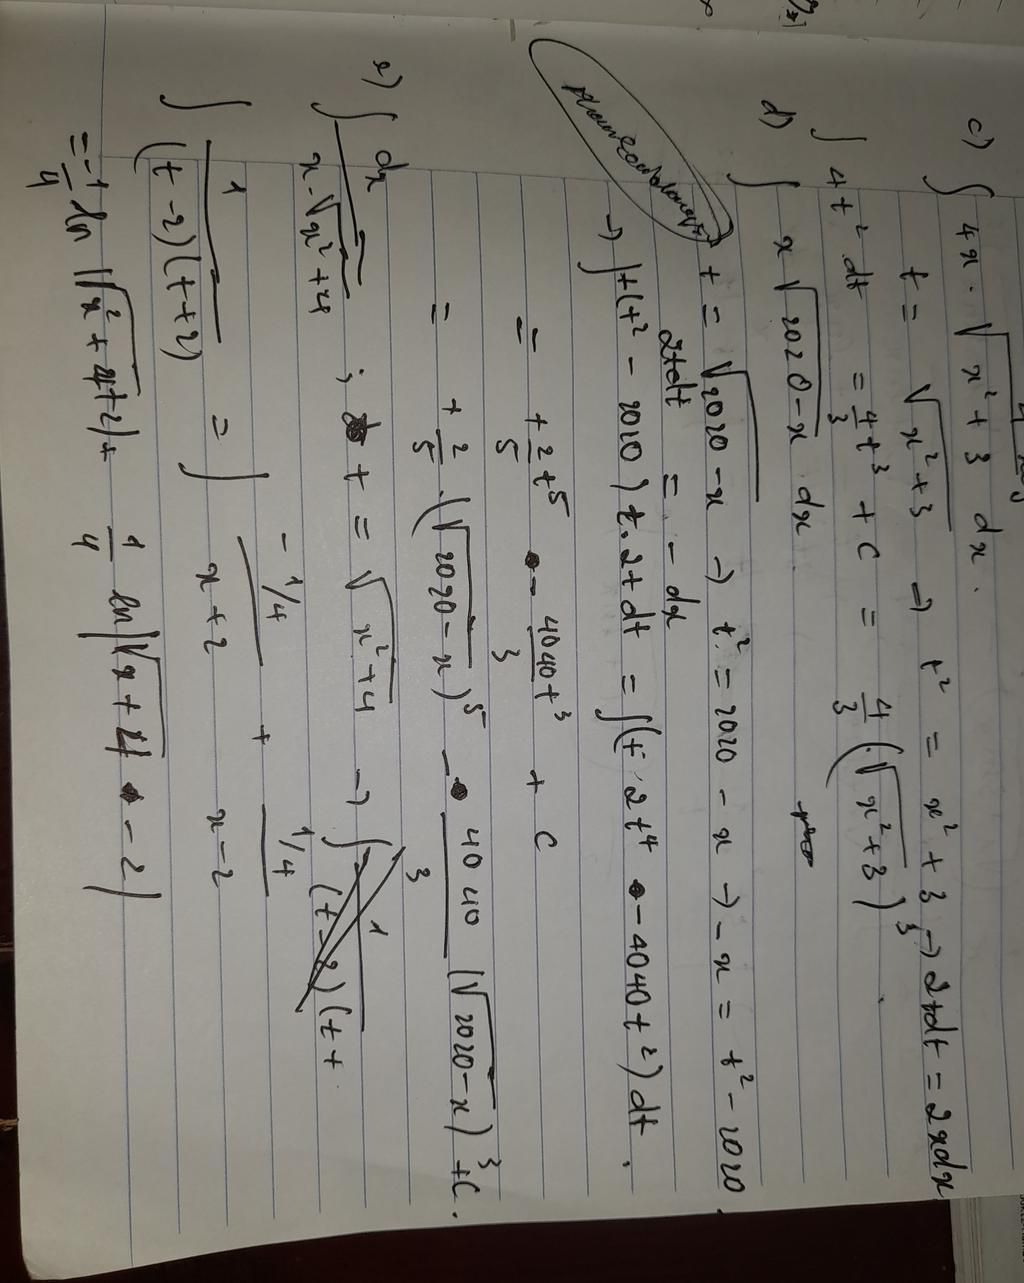 c) ∫ 4x . √x² + 3 dx .
t = √x²+3 → t² = x² + 3 → 2tdt = 2xdx
∫ 4t² dt = 4/3 t³ + C = 4/3 (√x²+3)³ .
d) ∫ x √2020-x dx
t = √2020-x → t² = 2020 - x → - x = t² - 2020
2tdt = - dx
→ ∫ t(t² - 2020) t. 2t dt = ∫(t 2t⁴ - 4040t²) dt .
= + 2/5 t⁵ - 4040t³/3 + C
= + 2/5 .(√2020-x)⁵ - 4040/3 (√2020-x)³ +C .
e) ∫ dx / x.√x²+4 ; t = √x²+4 → ∫ 1 / (t-2)(t+
∫ 1 / (t-2)(t+2) = ∫ -1/4 / x+2 + 1/4 / x-2
= -1/4 ln |√x²+4+2| + 1/4 ln|√x+4 - 2|